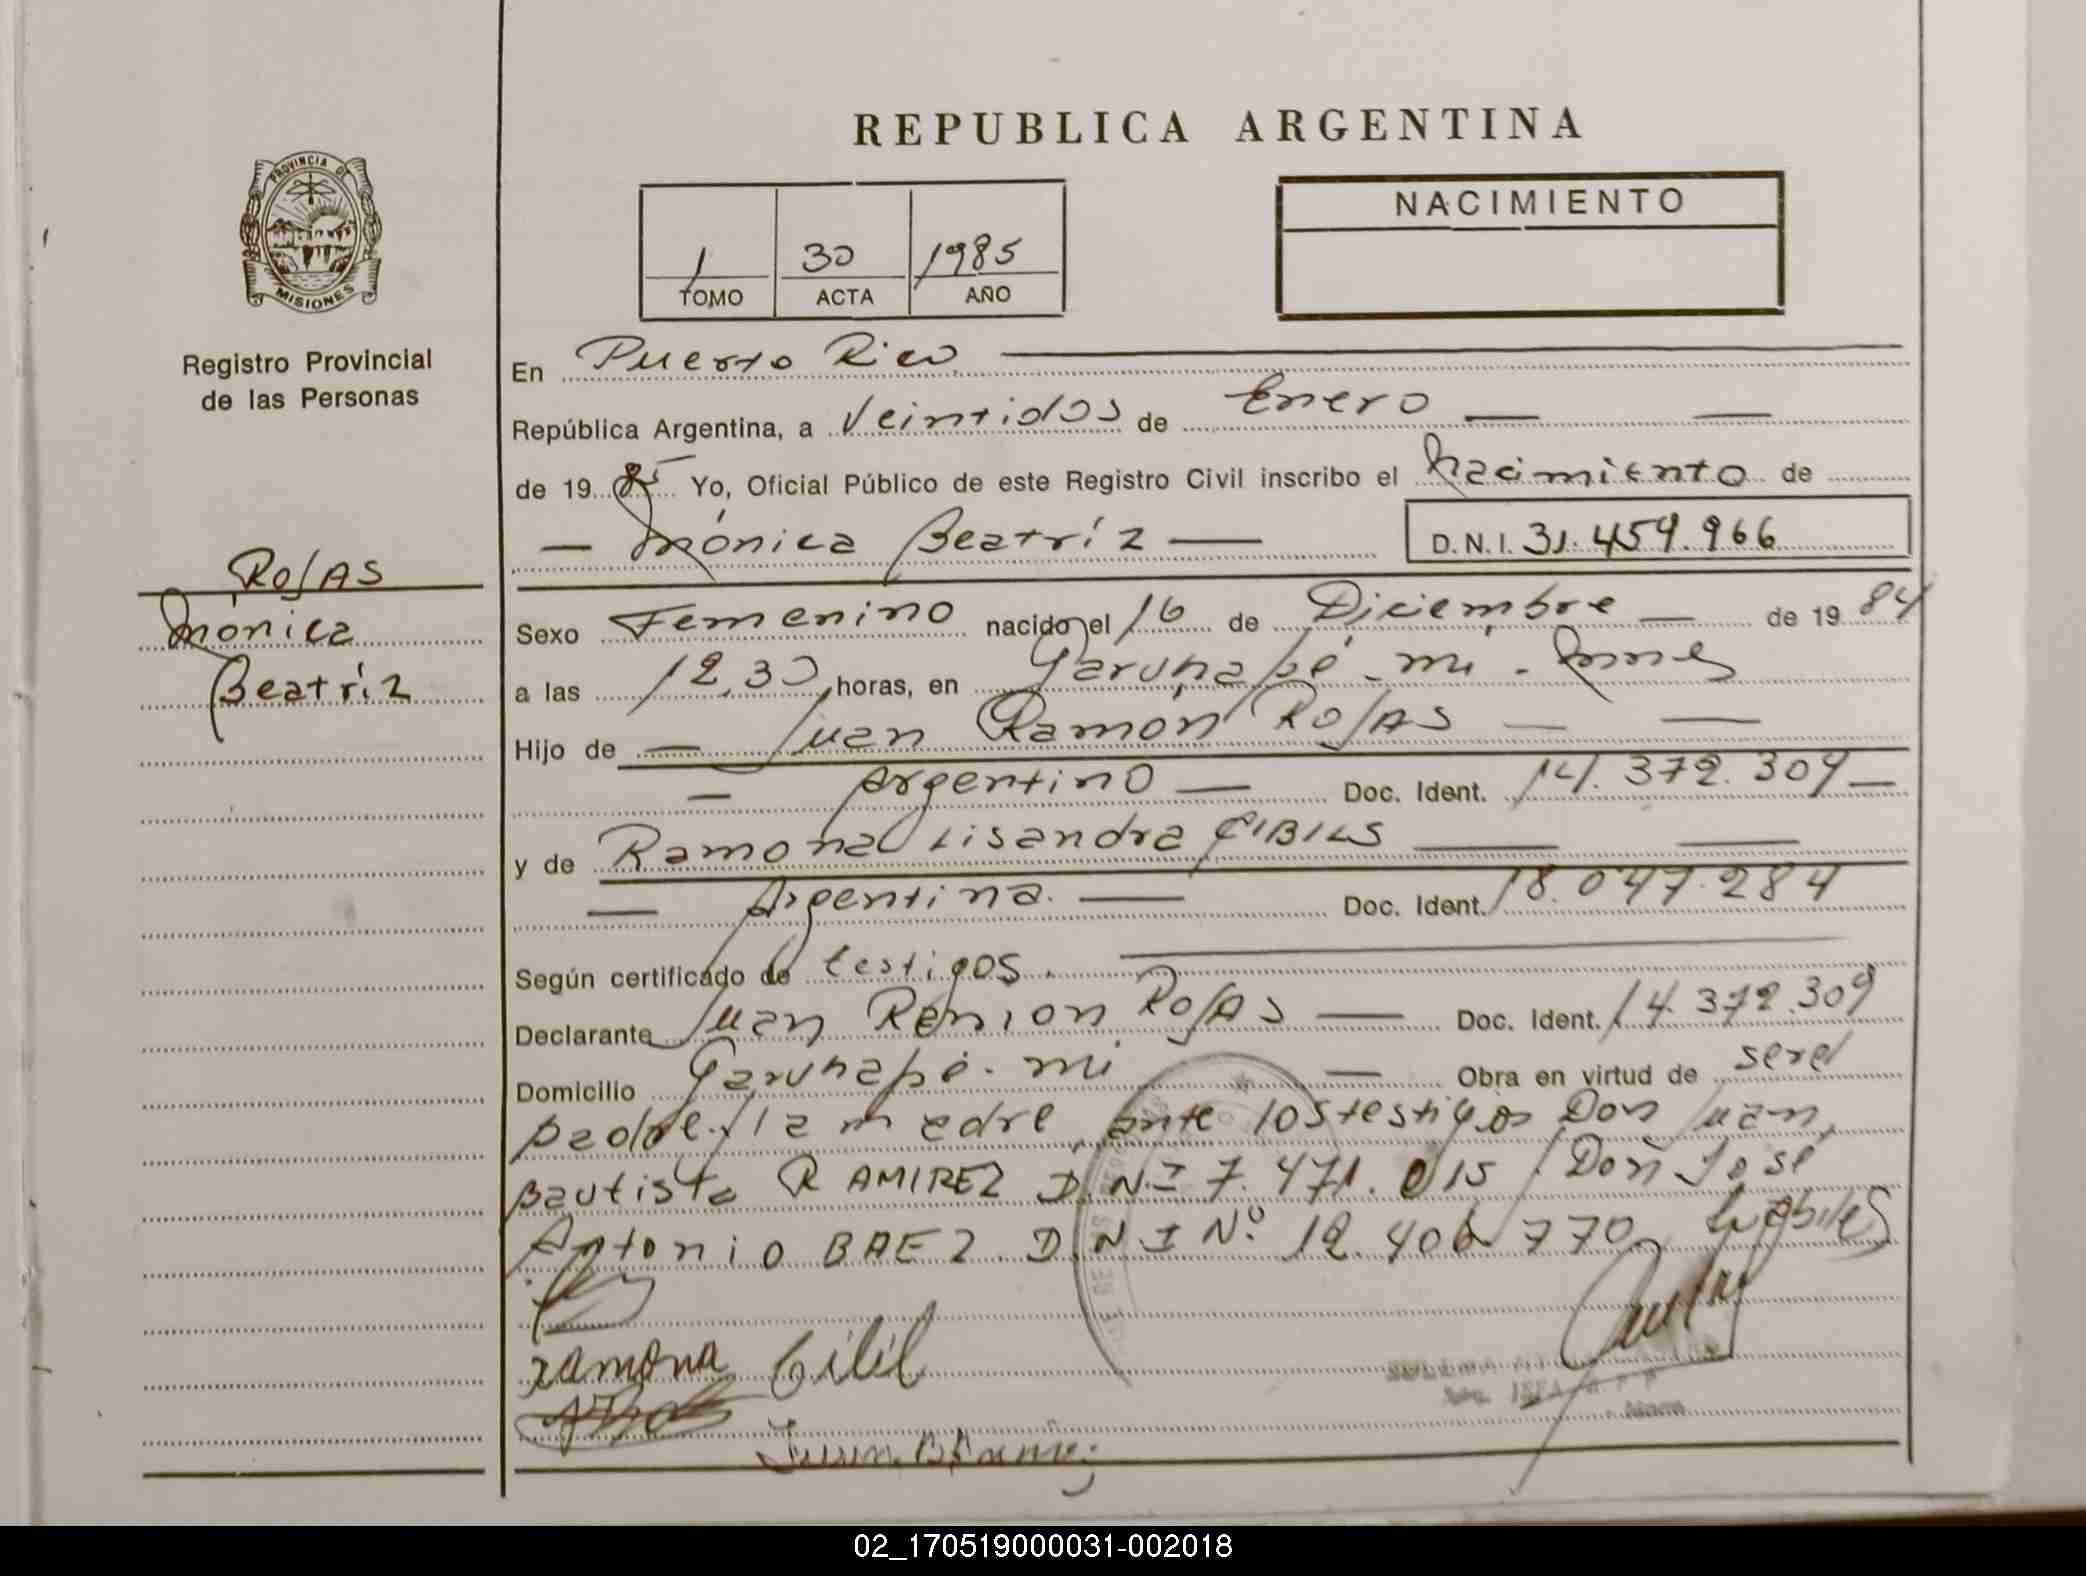 REPUBLICA ARGENTINA
PROVINCIA DE
MISIONES
Registro Provincial
de las Personas
1 30 1985
TOMO ACTA AÑO
NACIMIENTO
En Puerto Rico
República Argentina, a Veintidos de Enero
de 19 85 Yo, Oficial Público de este Registro Civil inscribo el Nacimiento de
Mónica Beatríz D.N.I. 31.459.966
ROJAS
Mónica
Beatríz
Sexo Femenino nacido el 16 de Diciembre de 19 84
a las 12,30 horas, en Garuhapé - mí -
Hijo de Juan Ramón ROJAS
Argentino Doc. Ident. 14.372.309
y de Ramona Lisandra CIBILS
Argentina. Doc. Ident. 18.047.284
Según certificado de testigos.
Declarante Juan Ramon ROJAS Doc. Ident. 14.372.309
Domicilio Garuhapé - mí Obra en virtud de ser el
padre y la madre, ante los testigos Don Juan
Bautista RAMIREZ D.N.I 7.471.015 y Don José
Antonio BAEZ D.N.I Nº 12.406.770 hábiles
Ramona Cibil
Juan B Ramirez
02_170519000031-002018